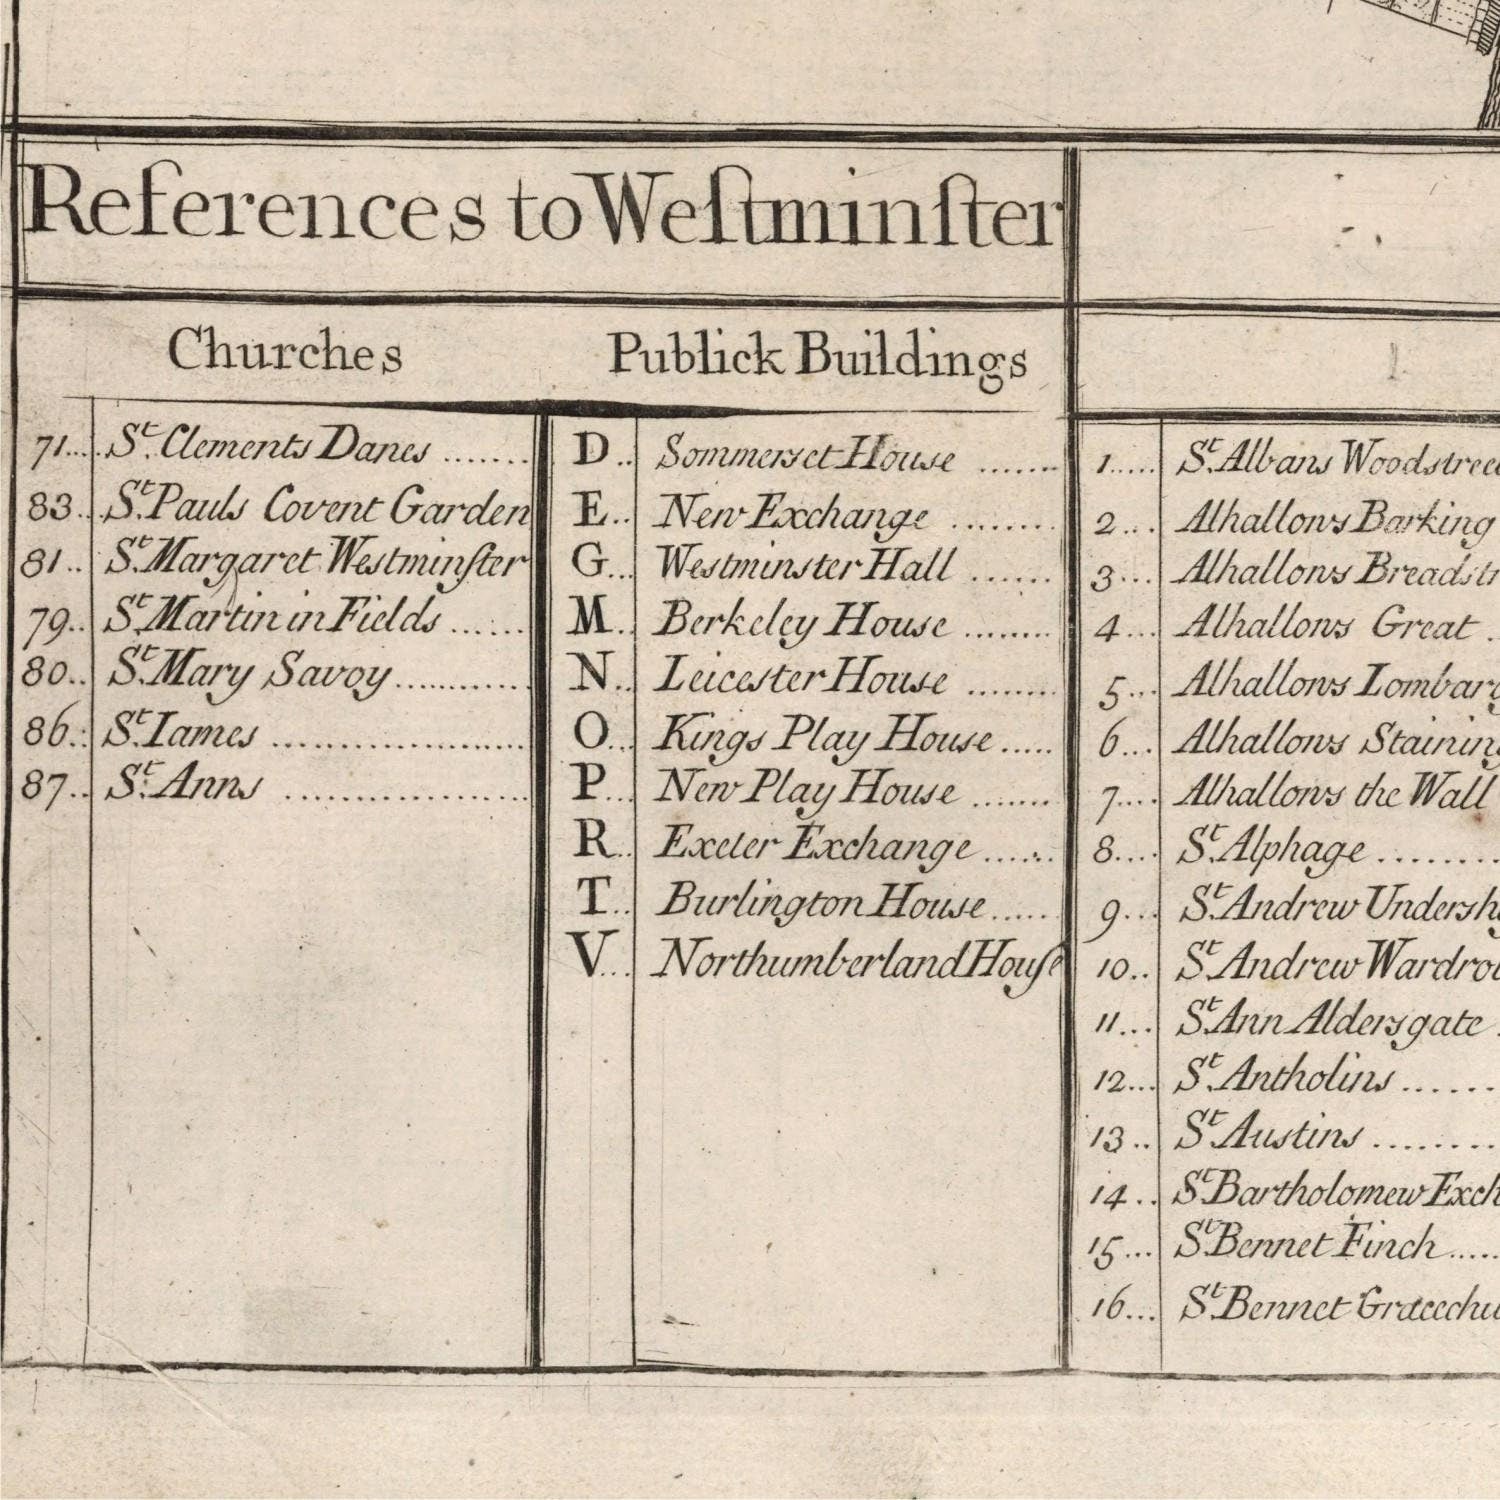 References to Weſtminſter
Churches
71.... St. Clements Danes .......
83... St. Pauls Covent Garden
81.. St. Margaret Westminſter
79.. St. Martin in Fields ......
80.. St. Mary Savoy............
86.. St. Iames .....................
87.. St. Anns ....................
Publick Buildings
D.. Sommerset House .......
E.. New Exchange ........
G... Westminster Hall ......
M.. Berkeley House ........
N.. Leicester House ........
O... Kings Play House .....
P... New Play House .......
R.. Exeter Exchange ......
T.. Burlington House .....
V... Northumberland Houſe
1..... St. Albans
2... Alhallows Barking
3... Alhallows
4... Alhallows Great .
5... Alhallows
6... Alhallows
7.... Alhallows the Wall
8.... St. Alphage ........
9... St. Andrew
10.. St. Andrew
11... St. Ann Aldersgate .
12... St. Antholins ......
13.. St. Austins ........
14.. St. Bartholomew
15... St. Bennet Finch .....
16... St. Bennet